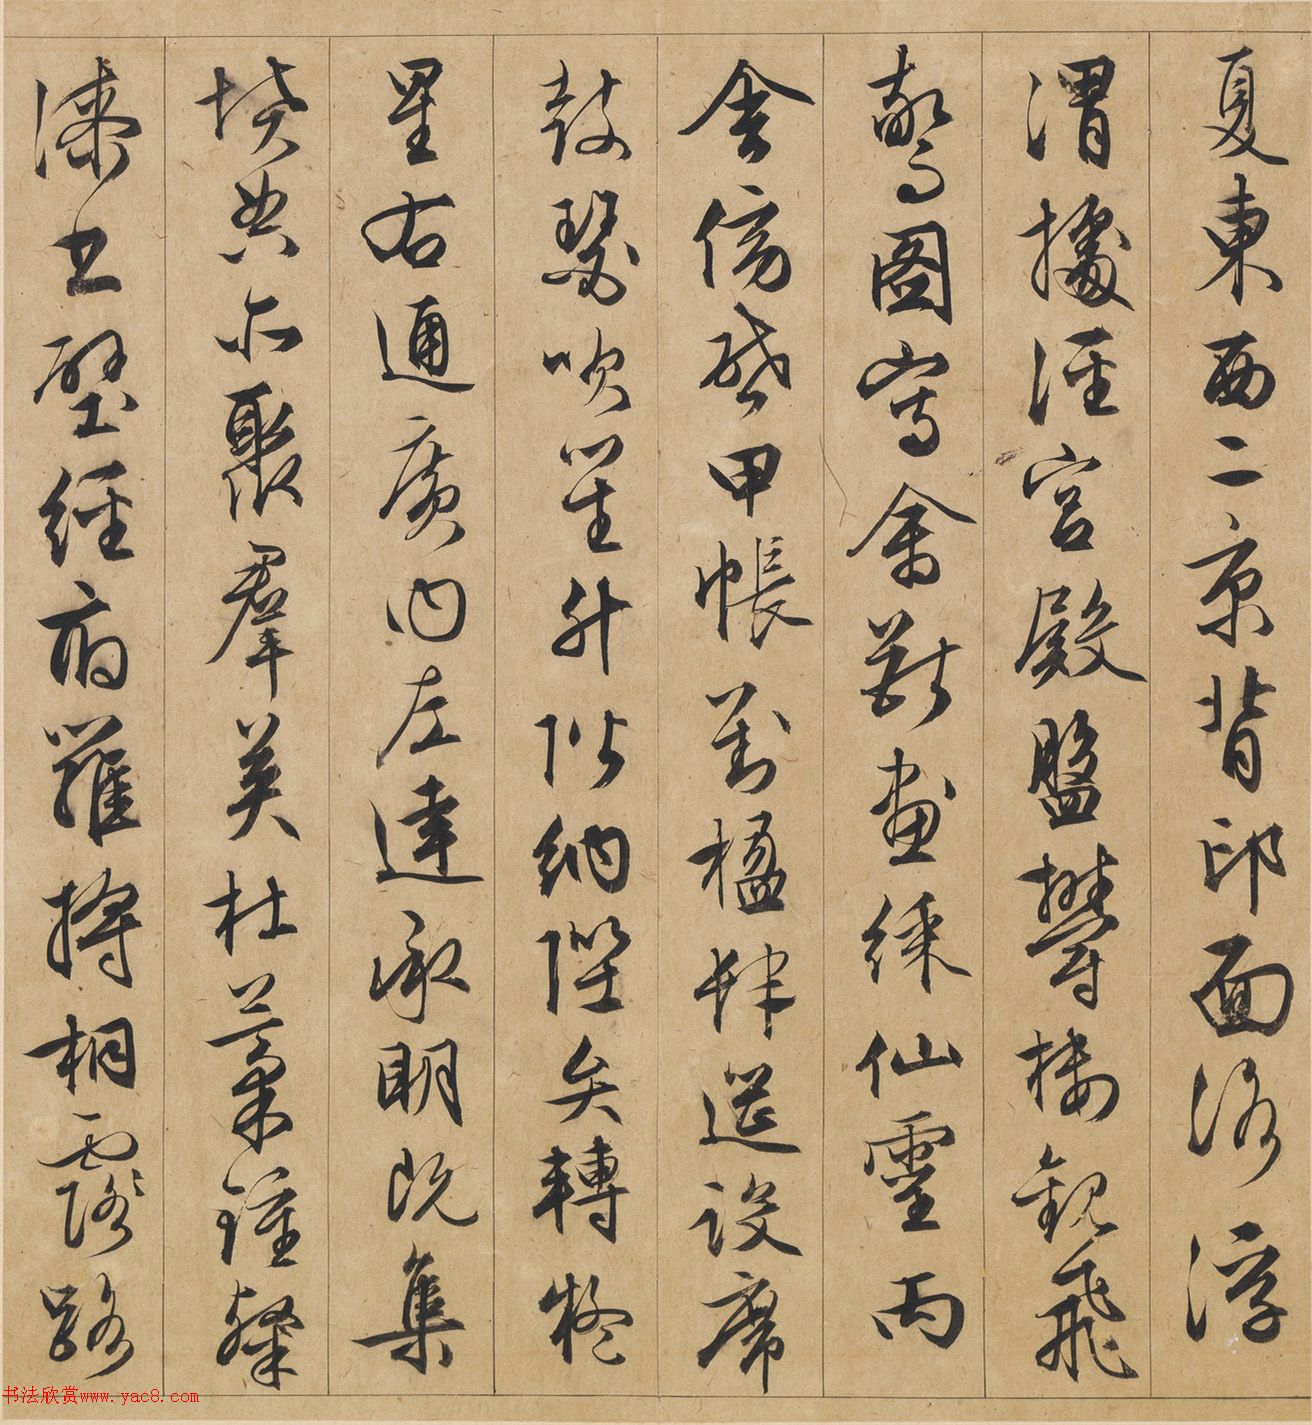 夏東西二京背邙面洛浮
渭據涇宮殿盤鬱樓觀飛
驚圖寫禽獸畫綵仙靈丙
舍傍啓甲帳對楹肆筵設席
鼓瑟吹笙升階納陛弁轉疑
星右通廣內左達承明既集
墳典亦聚羣英杜藁鍾隸
漆書壁經府羅將相路
书法欣赏www.yac8.com